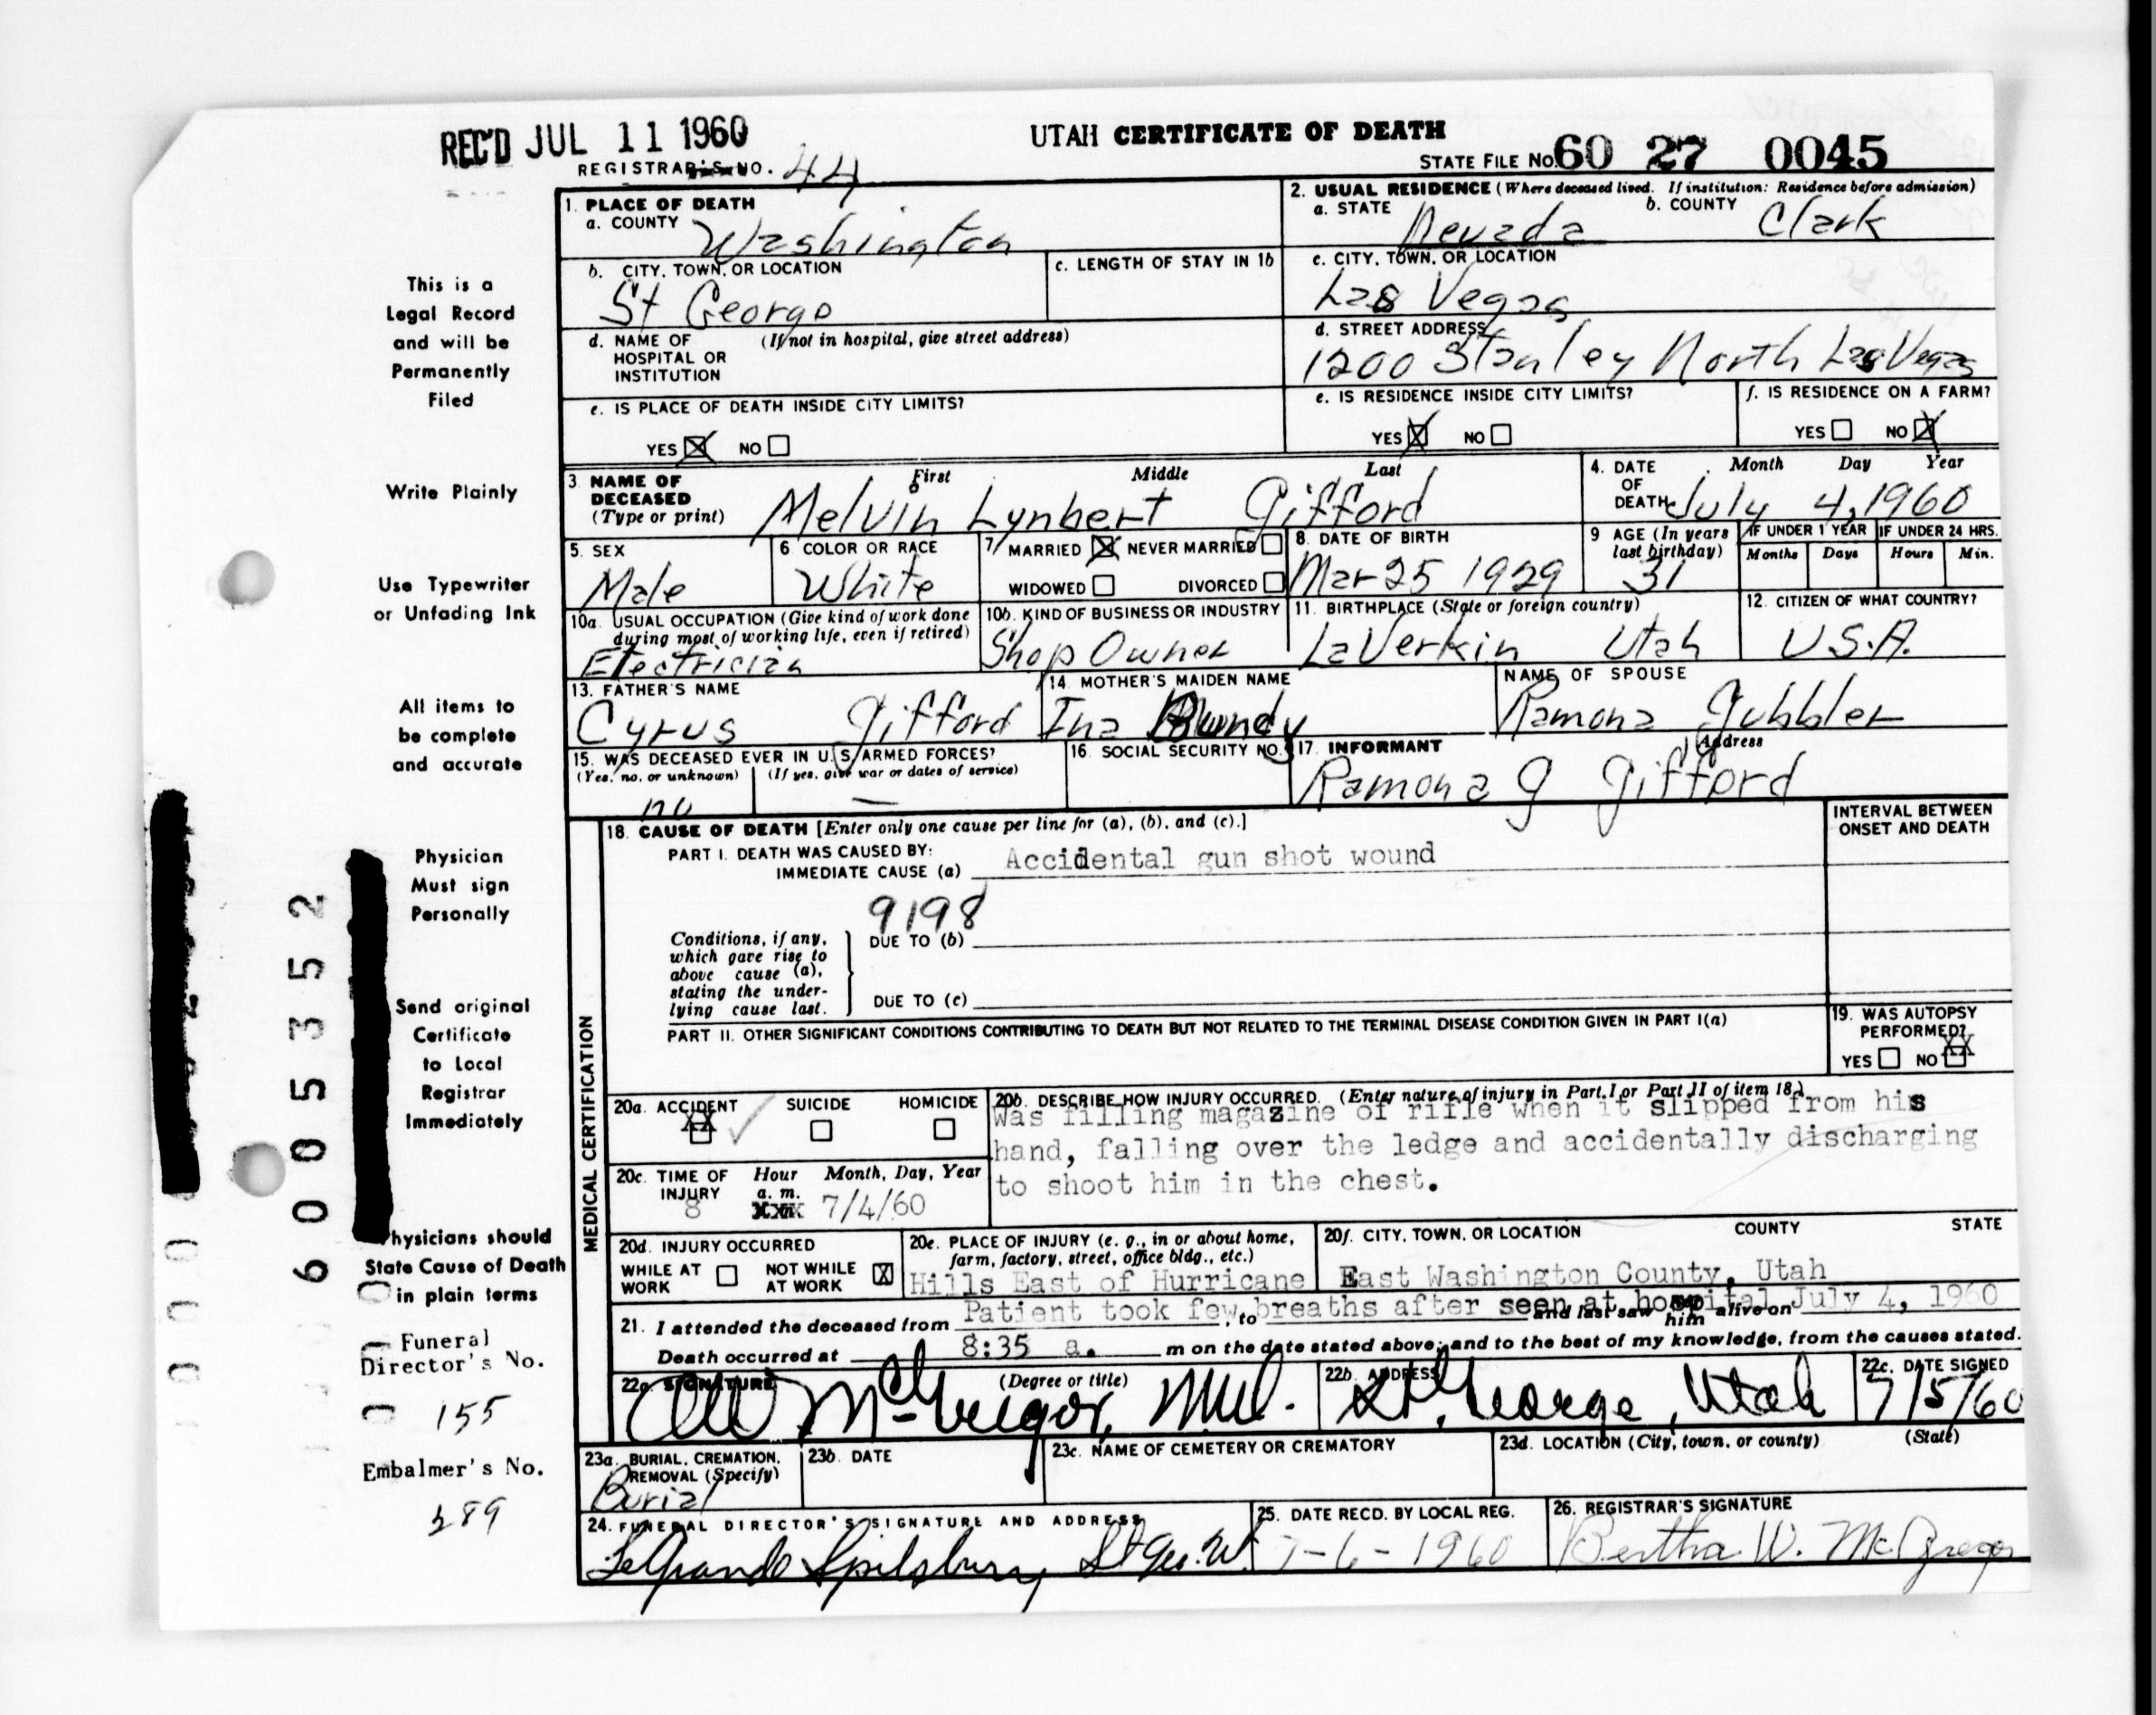 REC'D JUL 11 1960
UTAH CERTIFICATE OF DEATH
REGISTRAR'S NO. 44
STATE FILE No. 60 27 0045
1. PLACE OF DEATH
a. COUNTY Washington
2. USUAL RESIDENCE (Where deceased lived. If institution: Residence before admission)
a. STATE Nevada b. COUNTY Clark
b. CITY, TOWN, OR LOCATION
St George
c. LENGTH OF STAY IN 1b
c. CITY, TOWN, OR LOCATION
Las Vegas
d. NAME OF HOSPITAL OR INSTITUTION (If not in hospital, give street address)
d. STREET ADDRESS
1200 Stanley North Las Vegas
e. IS PLACE OF DEATH INSIDE CITY LIMITS?
YES X NO
e. IS RESIDENCE INSIDE CITY LIMITS?
YES X NO
f. IS RESIDENCE ON A FARM?
YES NO X
3. NAME OF DECEASED (Type or print)
First Middle Last
Melvin Lynbert Gifford
4. DATE OF DEATH Month Day Year
July 4, 1960
5. SEX
Male
6 COLOR OR RACE
White
7. MARRIED X NEVER MARRIED
WIDOWED DIVORCED
8. DATE OF BIRTH
Mar 25 1929
9 AGE (In years last birthday)
31
IF UNDER 1 YEAR IF UNDER 24 HRS.
Months Days Hours Min.
10a. USUAL OCCUPATION (Give kind of work done during most of working life, even if retired)
Electrician
10b. KIND OF BUSINESS OR INDUSTRY
Shop Owner
11. BIRTHPLACE (State or foreign country)
LaVerkin Utah
12. CITIZEN OF WHAT COUNTRY?
U.S.A.
13. FATHER'S NAME
Cyrus Gifford
14. MOTHER'S MAIDEN NAME
Ina Bundy
NAME OF SPOUSE
Ramona Gubbler
15. WAS DECEASED EVER IN U.S. ARMED FORCES?
(Yes, no, or unknown) (If yes, give war or dates of service)
no —
16. SOCIAL SECURITY NO.
17. INFORMANT Address
Ramona G Gifford
MEDICAL CERTIFICATION
18. CAUSE OF DEATH [Enter only one cause per line for (a), (b), and (c).]
INTERVAL BETWEEN ONSET AND DEATH
PART I. DEATH WAS CAUSED BY:
IMMEDIATE CAUSE (a) Accidental gun shot wound
9198
Conditions, if any, which gave rise to above cause (a), stating the underlying cause last.
DUE TO (b)
DUE TO (c)
PART II. OTHER SIGNIFICANT CONDITIONS CONTRIBUTING TO DEATH BUT NOT RELATED TO THE TERMINAL DISEASE CONDITION GIVEN IN PART I(a)
19. WAS AUTOPSY PERFORMED?
YES NO XX
20a. ACCIDENT SUICIDE HOMICIDE
XX
20b. DESCRIBE HOW INJURY OCCURRED. (Enter nature of injury in Part I or Part II of item 18.)
Was filling magazine of rifle when it slipped from his
hand, falling over the ledge and accidentally discharging
to shoot him in the chest.
20c. TIME OF INJURY Hour Month, Day, Year
8 a. m. 7/4/60
20d. INJURY OCCURRED
WHILE AT WORK NOT WHILE AT WORK X
20e. PLACE OF INJURY (e. g., in or about home, farm, factory, street, office bldg., etc.)
Hills East of Hurricane
20f. CITY, TOWN, OR LOCATION COUNTY STATE
East Washington County, Utah
21. I attended the deceased from Patient took few, to breaths after seen at hospital and last saw him alive on July 4, 1960
Death occurred at 8:35 a. m on the date stated above; and to the best of my knowledge, from the causes stated.
22a. SIGNATURE (Degree or title)
McGregor, M.D.
22b. ADDRESS
St. George, Utah
22c. DATE SIGNED
7/5/60
23a. BURIAL, CREMATION, REMOVAL (Specify)
Burial
23b. DATE
23c. NAME OF CEMETERY OR CREMATORY
23d. LOCATION (City, town, or county) (State)
24. FUNERAL DIRECTOR'S SIGNATURE AND ADDRESS
LeGrande Spilsbury St Geo. Ut
25. DATE RECD. BY LOCAL REG.
7-6-1960
26. REGISTRAR'S SIGNATURE
Bertha W. McGregor
This is a
Legal Record
and will be
Permanently
Filed
Write Plainly
Use Typewriter
or Unfading Ink
All items to
be complete
and accurate
Physician
Must sign
Personally
Send original
Certificate
to Local
Registrar
Immediately
Physicians should
State Cause of Death
in plain terms
Funeral
Director's No.
155
Embalmer's No.
289
6005352